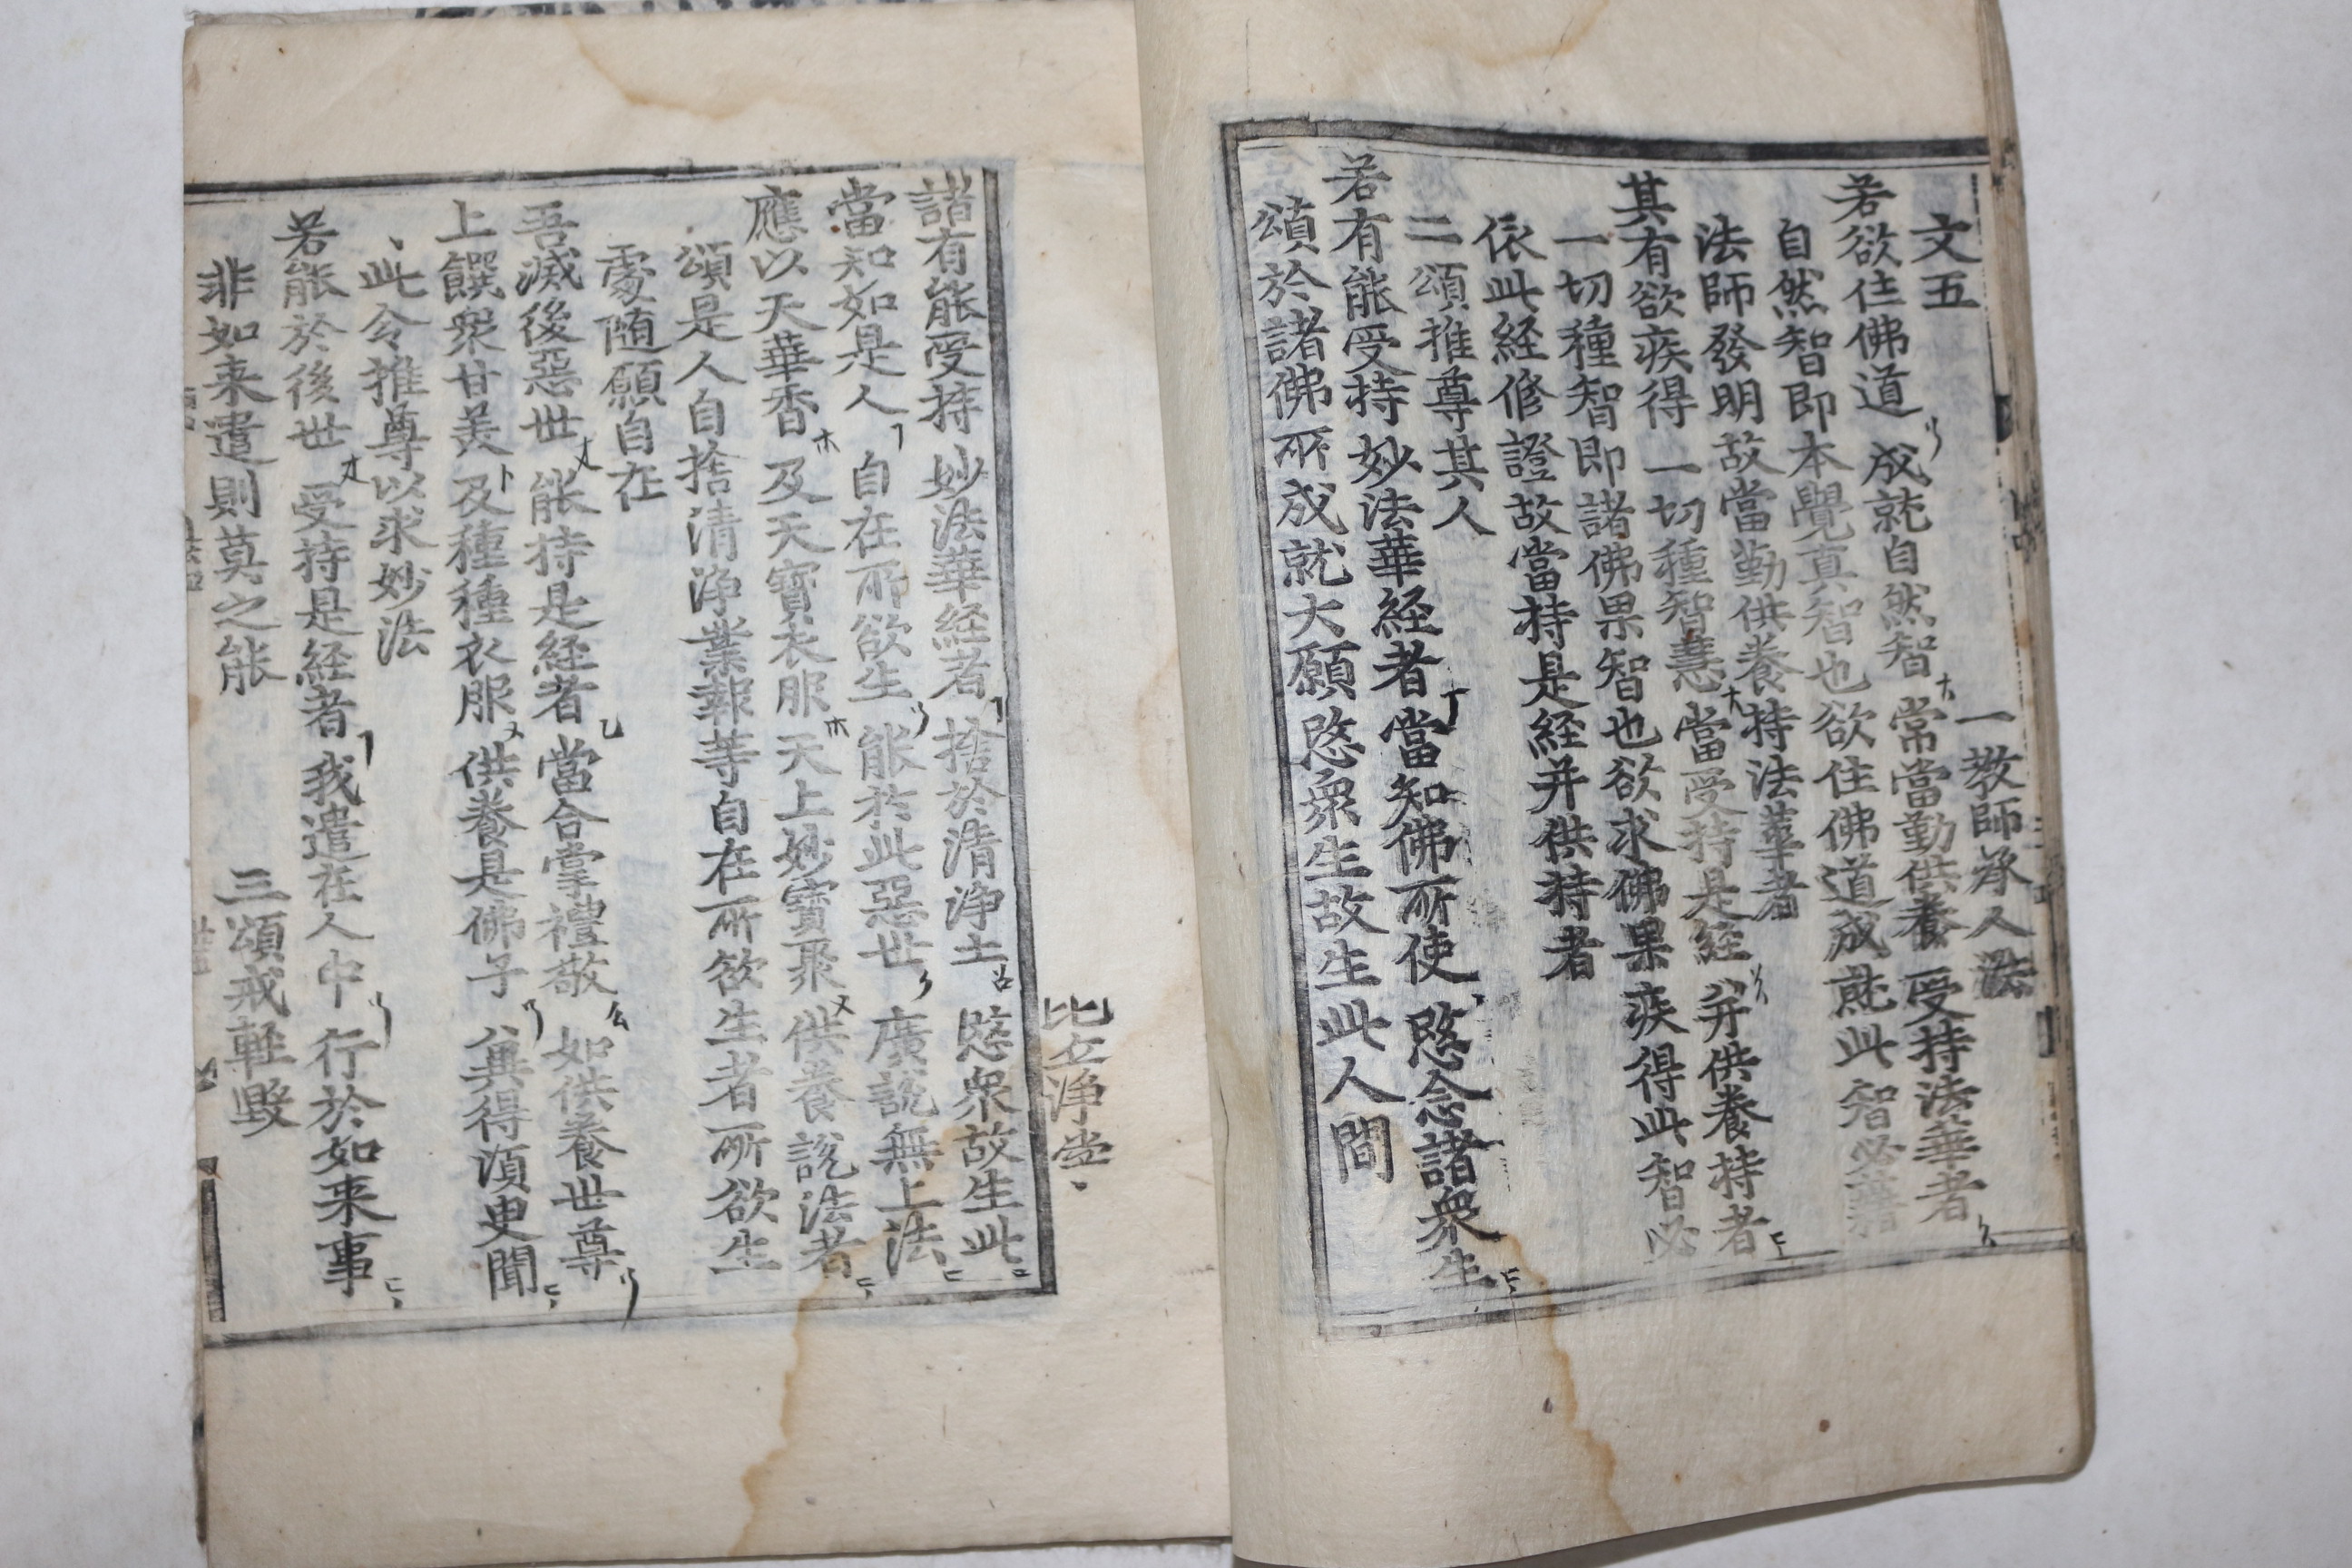 文五 一教師承人法
若欲住佛道 成就自然智 常當勤供養 受持法華者
自然智即本覺真智也欲住佛道成就此智必藉
法師發明故當勤供養持法華者
其有欲疾得 一切種智慧 當受持是經 并供養持者
一切種智即諸佛果智也欲求佛果疾得此智必
依此経修證故當持是経并供持者
二頌推尊其人
若有能受持 妙法華経者 當知佛所使 愍念諸衆生
頌於諸佛所成就大願愍衆生故生此人間
比丘淨堂
諸有能受持 妙法華経者 捨於清淨土 愍衆故生此
當知如是人 自在所欲生 能於此惡世 廣說無上法
應以天華香 及天寶衣服 天上妙寶聚 供養說法者
頌是人自捨清淨業報等自在所欲生者所欲生
處随願自在
吾滅後惡世 能持是経者 當合掌禮敬 如供養世尊
上饌衆甘美 及種種衣服 供養是佛子 兾得湏臾聞
此令推尊以求妙法
若能於後世 受持是経者 我遣在人中 行於如来事
非如来遣則莫之能 三頌戒輕毀